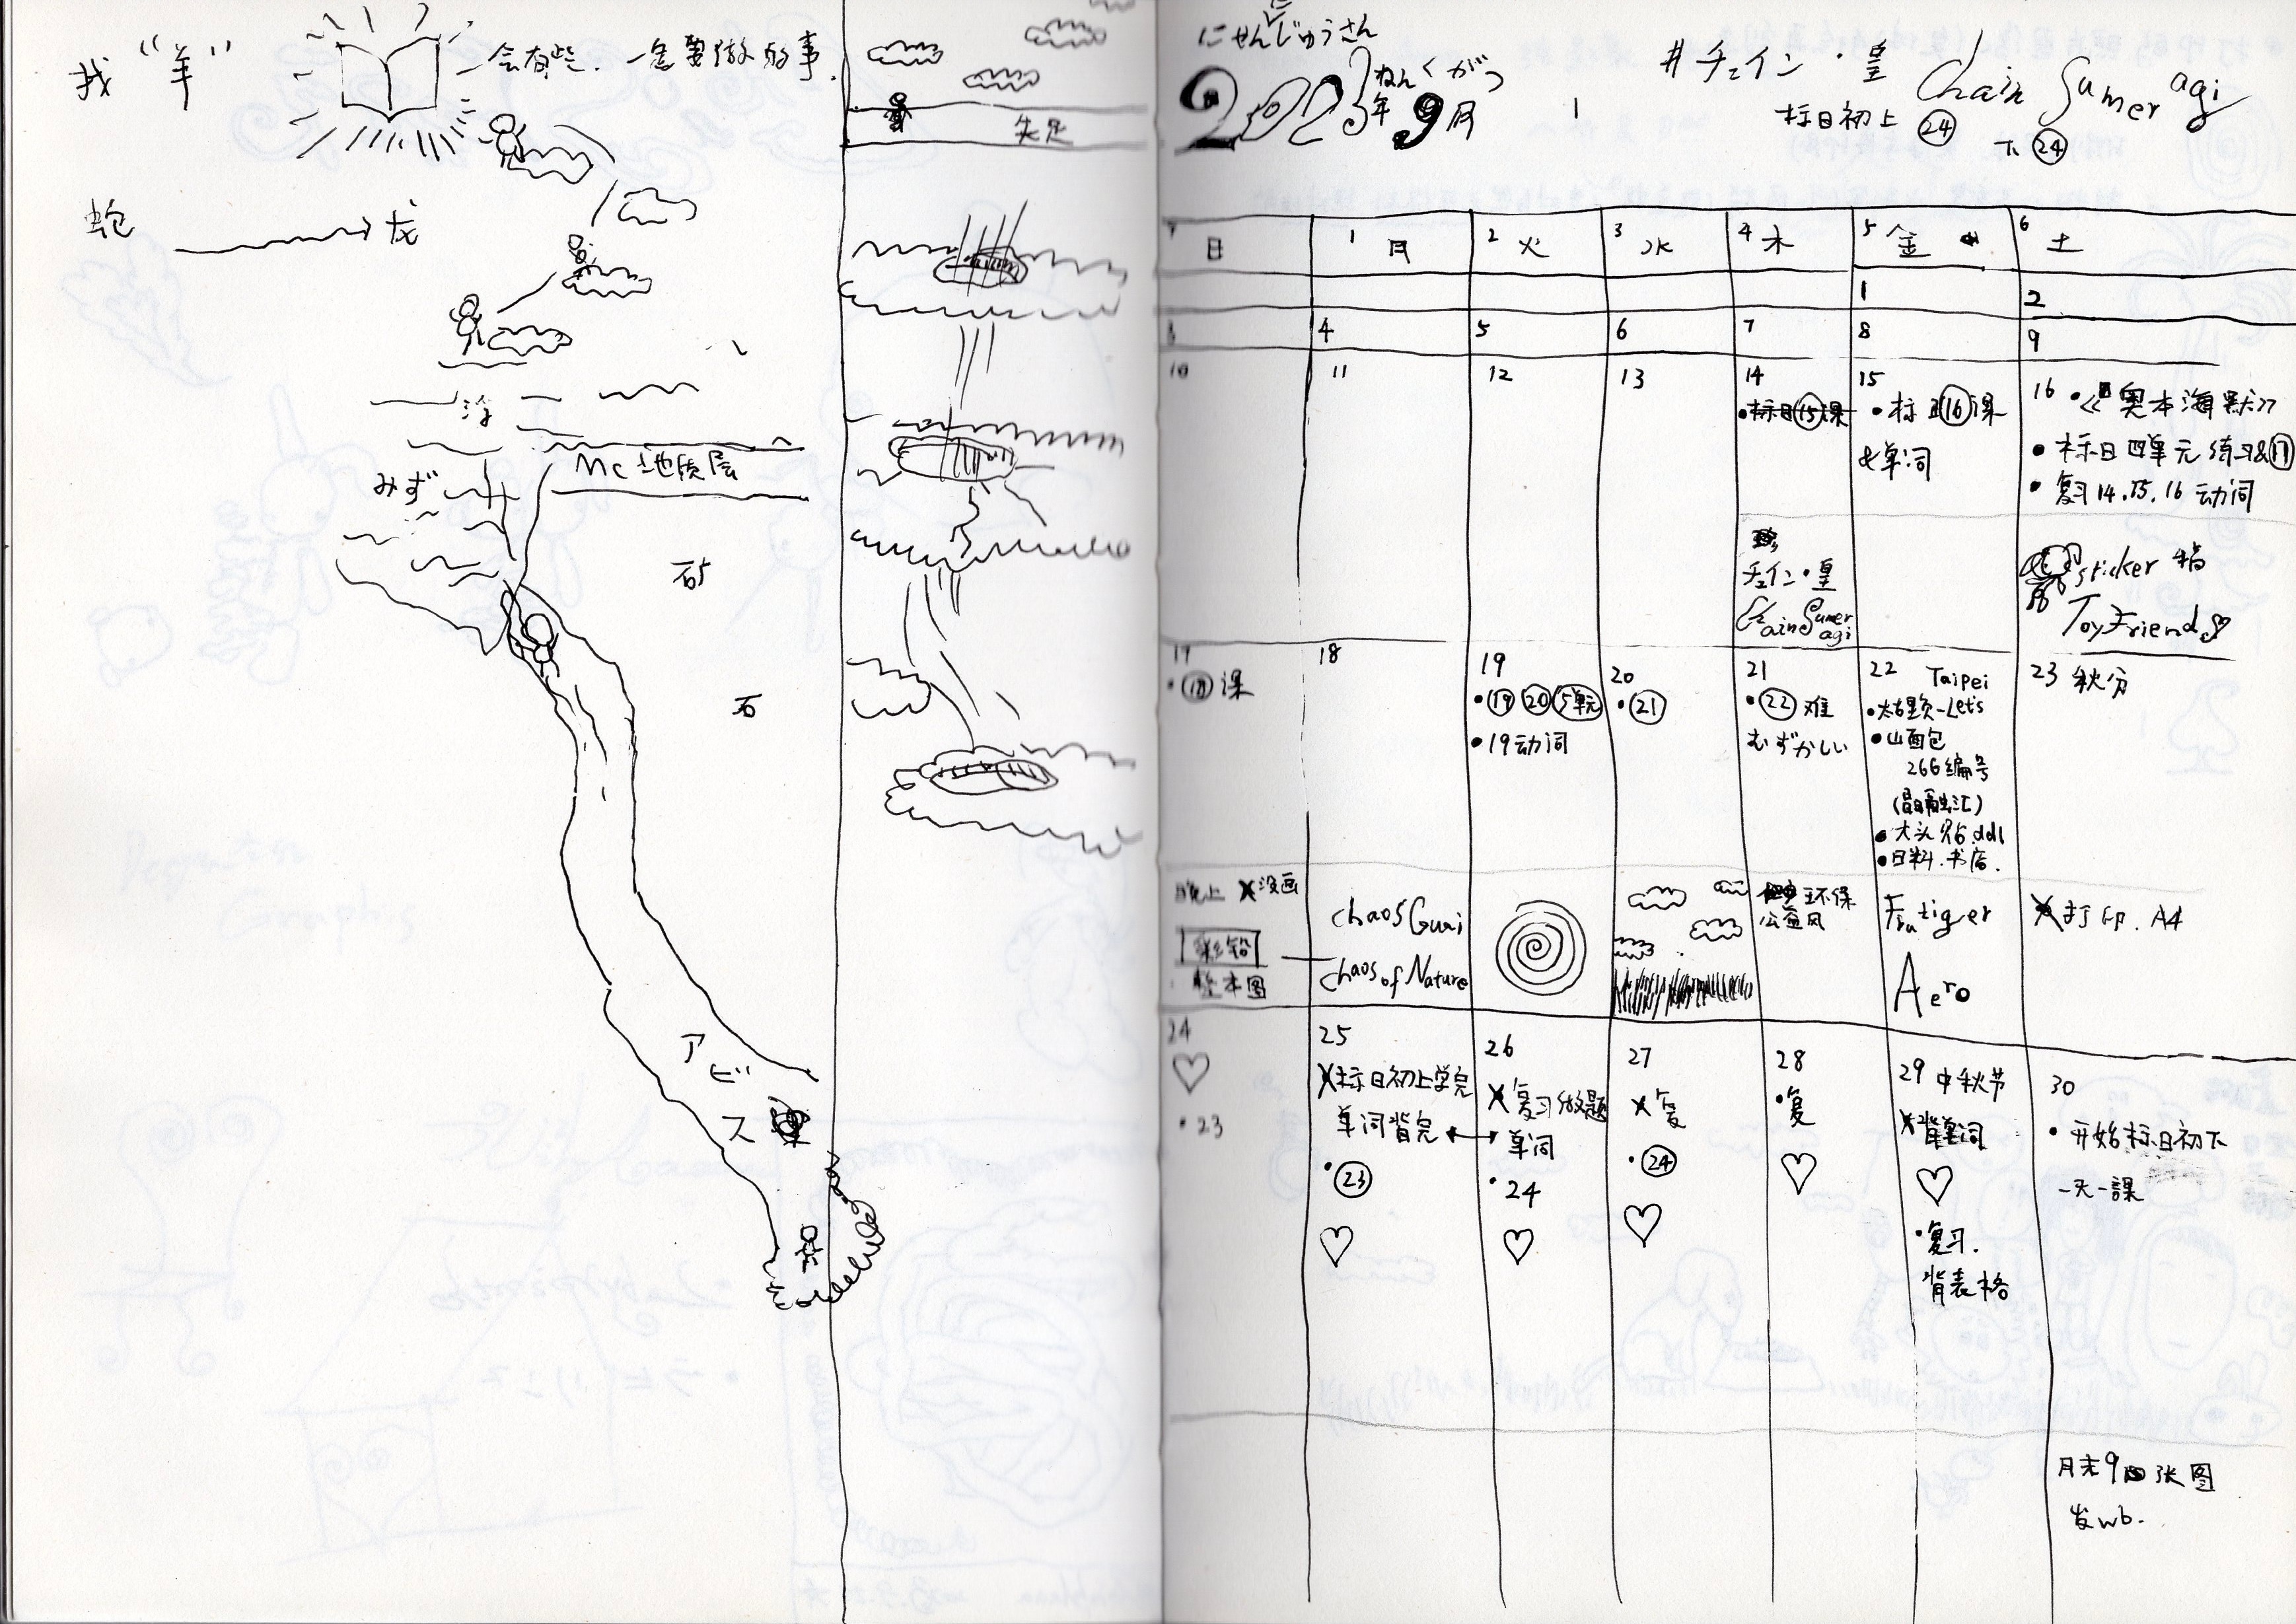 找 “羊”
会有些. 一定要做的事.
蛇 → 龙
みず
MC 地质层
矿
石
アビス
失足
にせんにじゅうさん
ねん くがつ
2023年 9月
#チェイン・皇
Chain Sumeragi
标日初上 24
下 24
7 日
1 月
2 火
3 水
4 木
5 金
6 土
1
2
3
4
5
6
7
8
9
10
11
12
13
14
•标日15课
チェイン・皇
Chain Sumeragi
15
•标日16课
&单词
16
•《奥本海默》
•标日四单元练习&17
•复习14.15.16动词
sticker 稿
ToyFriend
17
•18课
晚上 X漫画
彩铅
整本图
18
chaosGuai
chaos of Nature
19
•19 20 5单元
•19动词
20
•21
21
•22 难
むずかしい
环保
公益风
22 Taipei
-Let's
•山面包
266编号
•大头贴.ddl
•日料.书店.
Frutiger
Aero
23 秋分
X打印.A4
24
♡
•23
25
X标日初上学完
单词背完 ↔
•23
♡
26
X复习做题
单词
•24
♡
27
X复
•24
♡
28
•复
♡
29 中秋节
X背单词
♡
•复习.
背表格
30
•开始标日初下
一天一課
月末9张图
发wb.